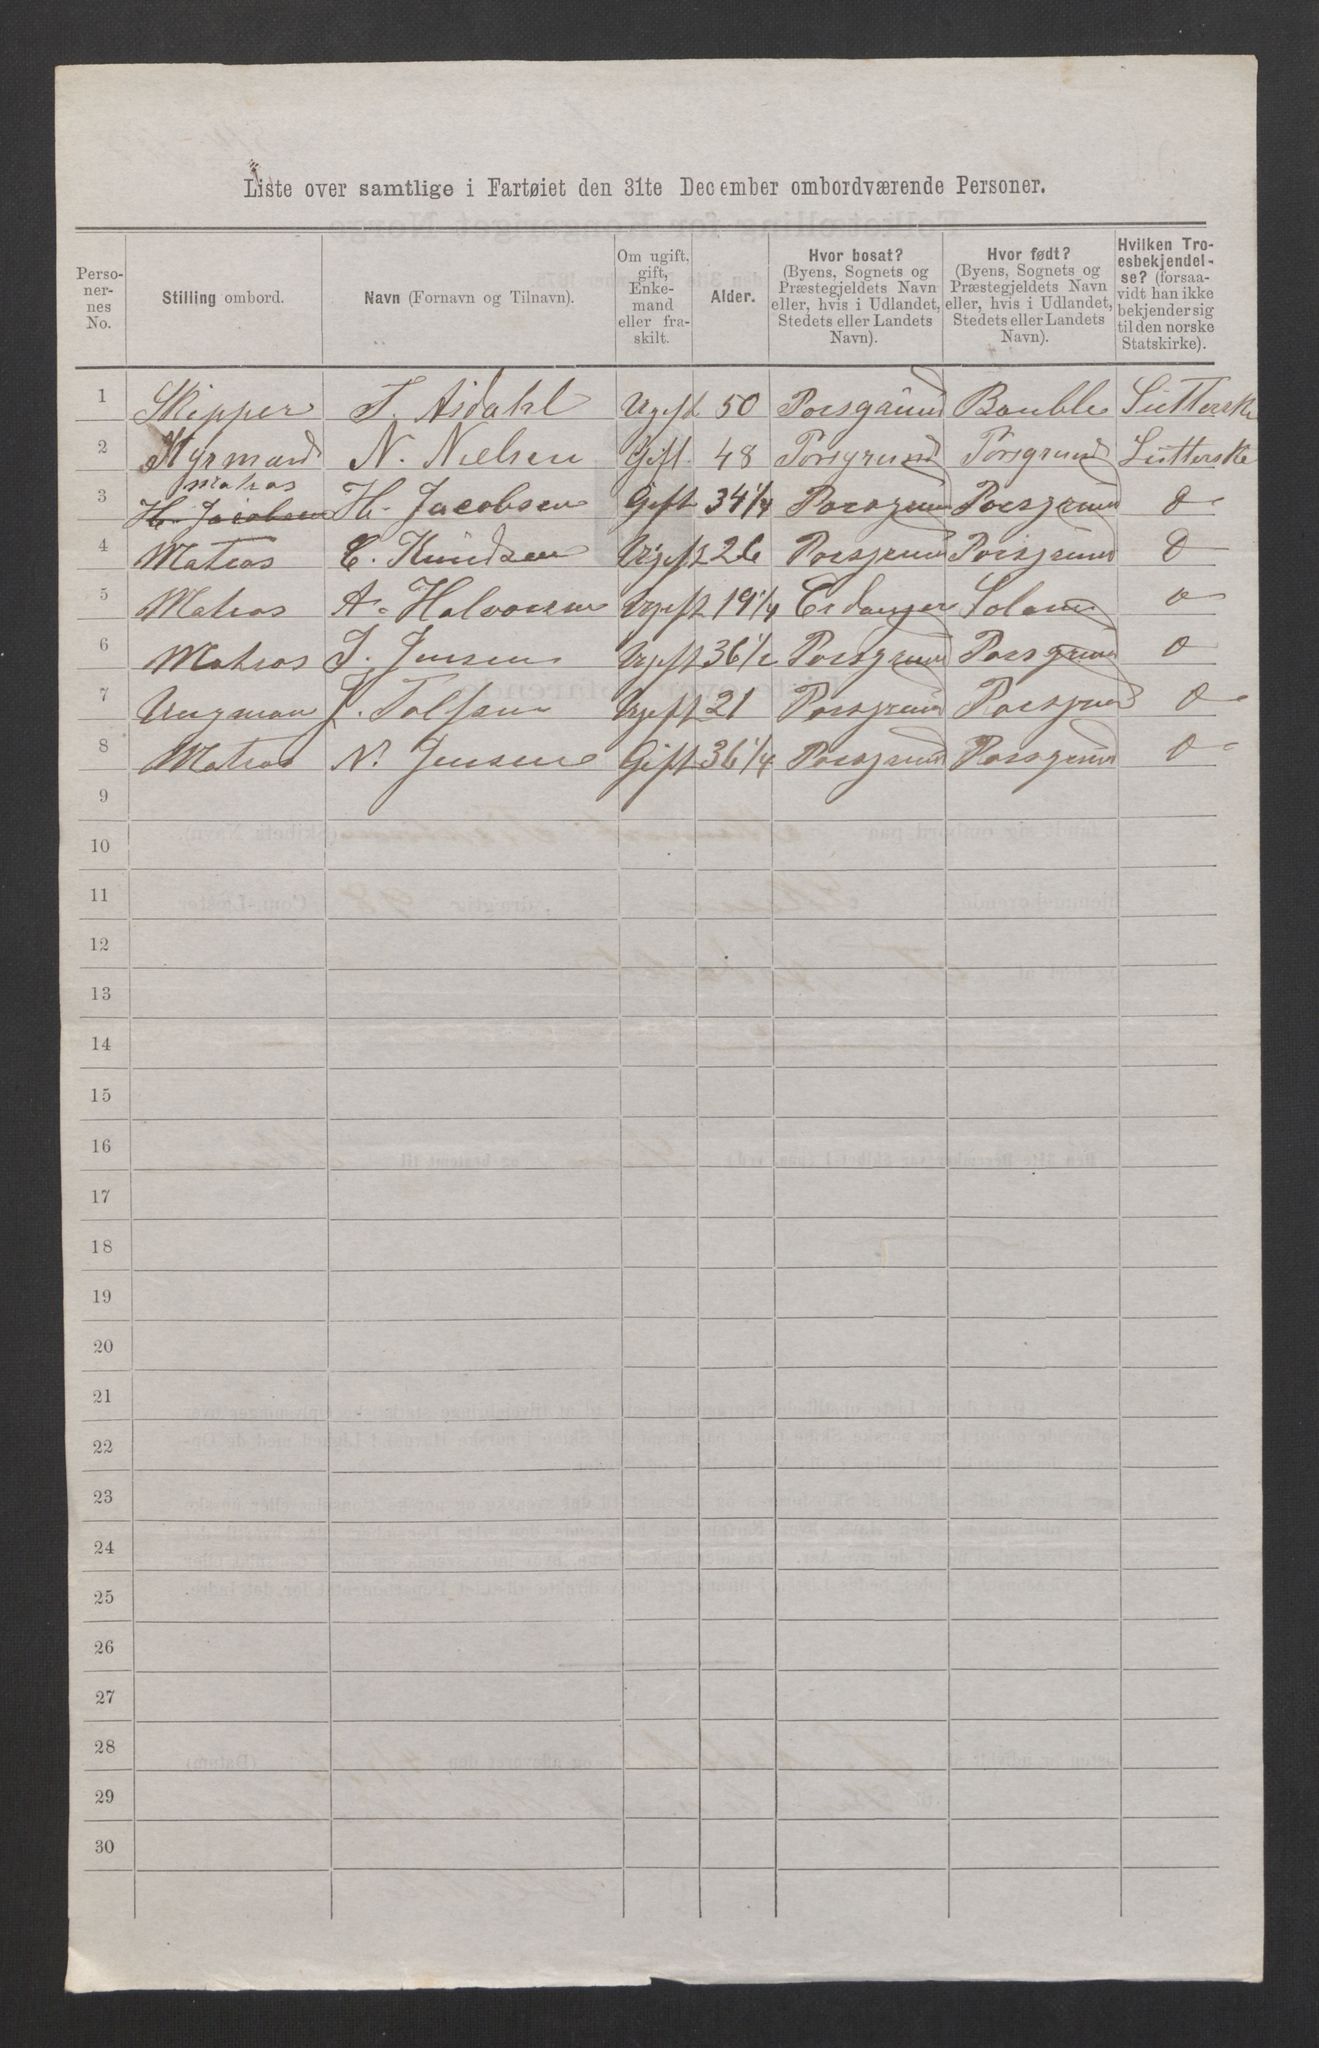 Liste over samtlige i Fartøiet den 31te December ombordværende Personer.
Perso-
ner-
nes
No.
Stilling ombord.
Navn (Fornavn og Tilnavn).
Om ugift,
gift,
Enke-
mand
eller fra-
skilt.
Alder.
Hvor bosat?
(Byens, Sognets og
Præstegjeldets Navn
eller, hvis i Udlandet,
Stedets eller Landets
Navn).
Hvor født?
(Byens, Sognets og
Præstegjeldets Navn
eller, hvis i Udlandet,
Stedets eller Landets
Navn).
Hvilken Tro-
esbekjendel-
se? (forsaa-
vidt han ikke
bekjender sig
til den norske
Statskirke).
1 Skipper T. Asdahl Ugift 50 Porsgrund Bamble Lutterske
2 Styrmand N. Nielsen Gift 48 Porsgrund Porsgrund Lutterske
Matros
3 H. Jacobsen H. Jacobsen Gift 34 1/4 Porsgrund Porsgrund
4 Matros C. Knudsen Ugift 26 Porsgrund Porsgrund
5 Matros A. Halvorsen Ugift 19 1/4 Eidanger
6 Matros J. Jensen Ugift 36 1/2 Porsgrund Porsgrund
7 Ungman Ugift 21 Porsgrund Porsgrund
8 Matros N. Jensen Gift 36 1/4 Porsgrund Porsgrund
9
10
11
12
13
14
15
16
17
18
19
20
21
22
23
24
25
26
27
28
29
30